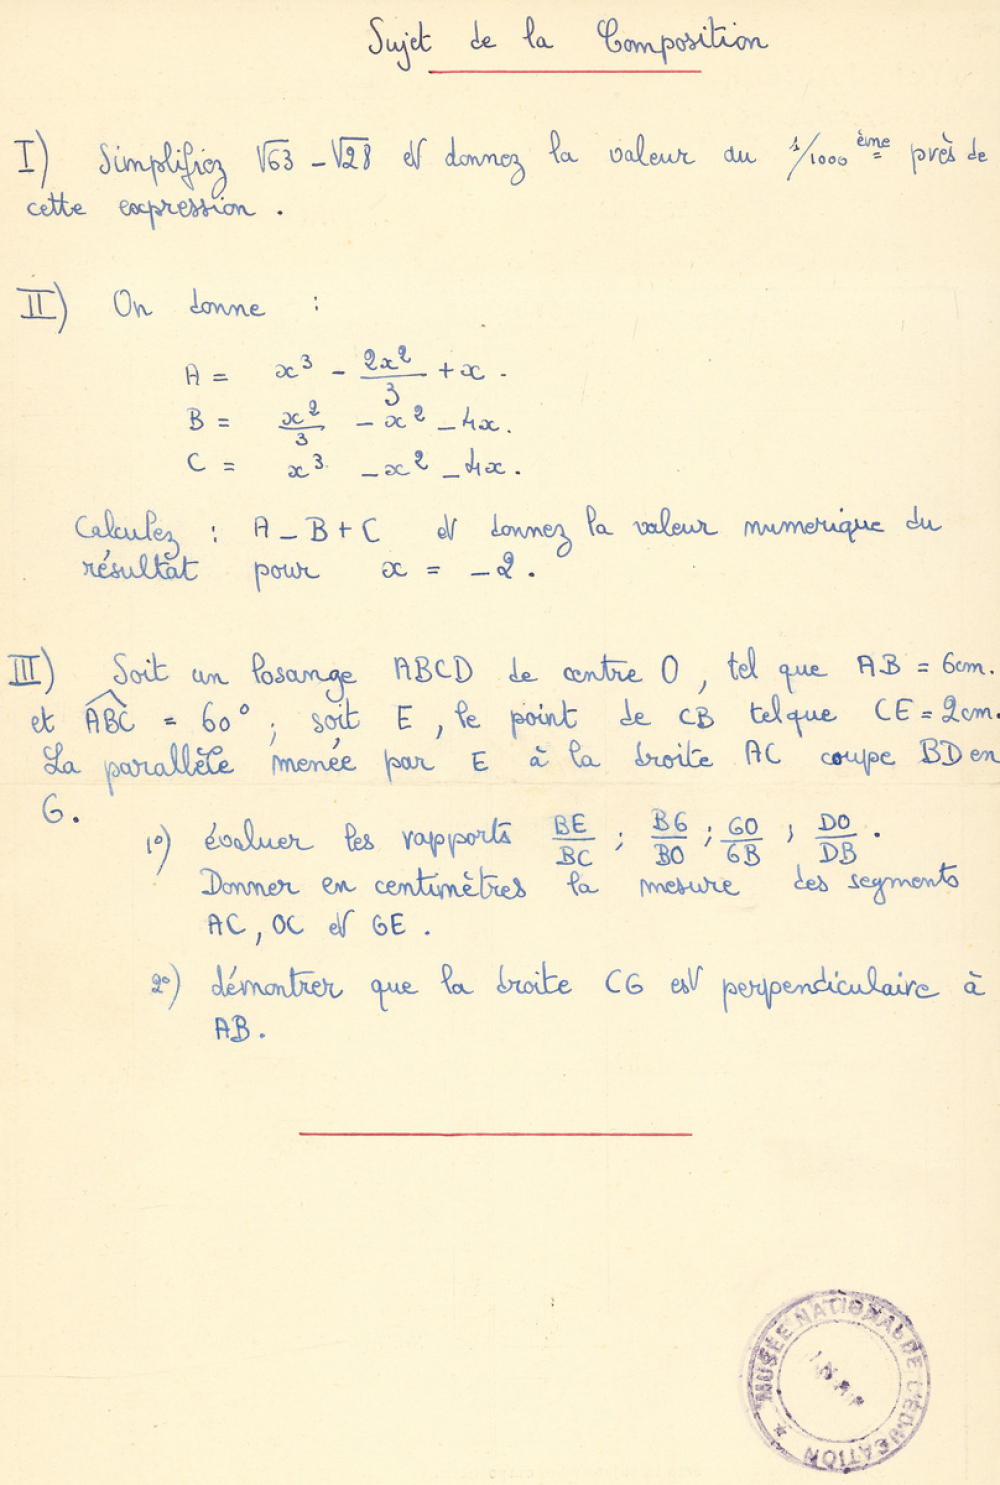 Sujet de la Composition
I) Simplifiez √63 - √28 et donnez la valeur au 1/1000 ème près de
cette expression.
II) On donne :
A = x³ - 2x²/3 + x.
B = x²/3 - x² - 4x.
C = x³ - x² - 4x.
Calculez : A - B + C et donnez la valeur numerique du
résultat pour x = -2.
III) Soit un losange ABCD de centre O, tel que AB = 6cm.
et ABC = 60° ; soit E, le point de CB tel que CE = 2cm.
La parallèle menée par E à la droite AC coupe BD en
G.
1°) évaluer les rapports BE/BC ; BG/BO ; GO/GB ; DO/DB.
Donner en centimètres la mesure des segments
AC, OC et GE.
2°) démontrer que la droite CG est perpendiculaire à
AB.
MUSÉE NATIONAL DE L'ÉDUCATION *